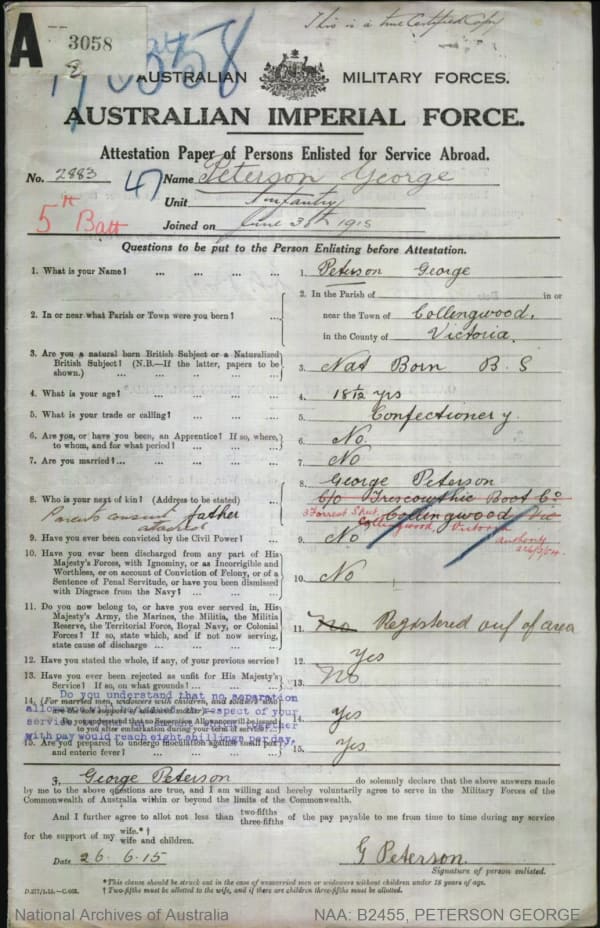 This is a true Certified Copy
A
3058
AUSTRALIAN MILITARY FORCES.
AUSTRALIAN IMPERIAL FORCE.
Attestation Paper of Persons Enlisted for Service Abroad.
No. 2883
47
Name Peterson George
Unit Infantry
5th Batt
Joined on June 1915
Questions to be put to the Person Enlisting before Attestation.
1. What is your Name? ... ... ... ...
1. Peterson George
2. In or near what Parish or Town were you born? ...
2. In the Parish of in or
near the Town of Collingwood,
in the County of Victoria.
3. Are you a natural born British Subject or a Naturalized
British Subject? (N.B.—If the latter, papers to be
shown.) ... ... ... ... ...
3. Nat Born B. S
4. What is your age? ... ... ... ...
4. yrs
5. What is your trade or calling? ... ... ...
5. Confectionery.
6. Are you, or have you been, an Apprentice? If so, where,
to whom, and for what period? ... ... ...
6. No.
7. Are you married? ... ... ... ... ...
7. No
8. Who is your next of kin? (Address to be stated) ...
Parents consent father
attached
8. George Peterson
C/o Trescowthic Boot Co
Collingwood Vic
3 Forrest Street,
Collingwood Victoria
9. Have you ever been convicted by the Civil Power? ...
9. No
10. Have you ever been discharged from any part of His
Majesty's Forces, with Ignominy, or as Incorrigible
and Worthless, or on account of Conviction of Felony, or of a
Sentence of Penal Servitude, or have you been dismissed
with Disgrace from the Navy? ... ... ...
10. No
11. Do you now belong to, or have you ever served in, His
Majesty's Army, the Marines, the Militia, the Militia
Reserve, the Territorial Force, Royal Navy, or Colonial
Forces? If so, state which, and if not now serving,
state cause of discharge ... ... ... ...
11. No Registered out of area
12. Have you stated the whole, if any, of your previous service?
12. Yes
13. Have you ever been rejected as unfit for His Majesty's
Service? If so, on what grounds? ... ... ...
13. No
Do you understand that no separation
14. (For married men, widowers with children, and soldiers who
are the sole support of widowed mother)—
Do you understand that no Separation Allowance will be issued
to you after embarkation during your term of service?
with pay would reach eight shillings per day.
14. Yes
15. Are you prepared to undergo inoculation against small pox
and enteric fever? ... ... ... ...
15. Yes
I, George Peterson do solemnly declare that the above answers made
by me to the above questions are true, and I am willing and hereby voluntarily agree to serve in the Military Forces of the
Commonwealth of Australia within or beyond the limits of the Commonwealth.
And I further agree to allot not less than two-fifths
three-fifths of the pay payable to me from time to time during my service
for the support of my wife.* †
wife and children.
Date 26.6.15
G Peterson.
Signature of person enlisted.
* This clause should be struck out in the case of unmarried men or widowers without children under 18 years of age.
† Two-fifths must be allotted to the wife, and if there are children three-fifths must be allotted.
National Archives of Australia
NAA: B2455, PETERSON GEORGE